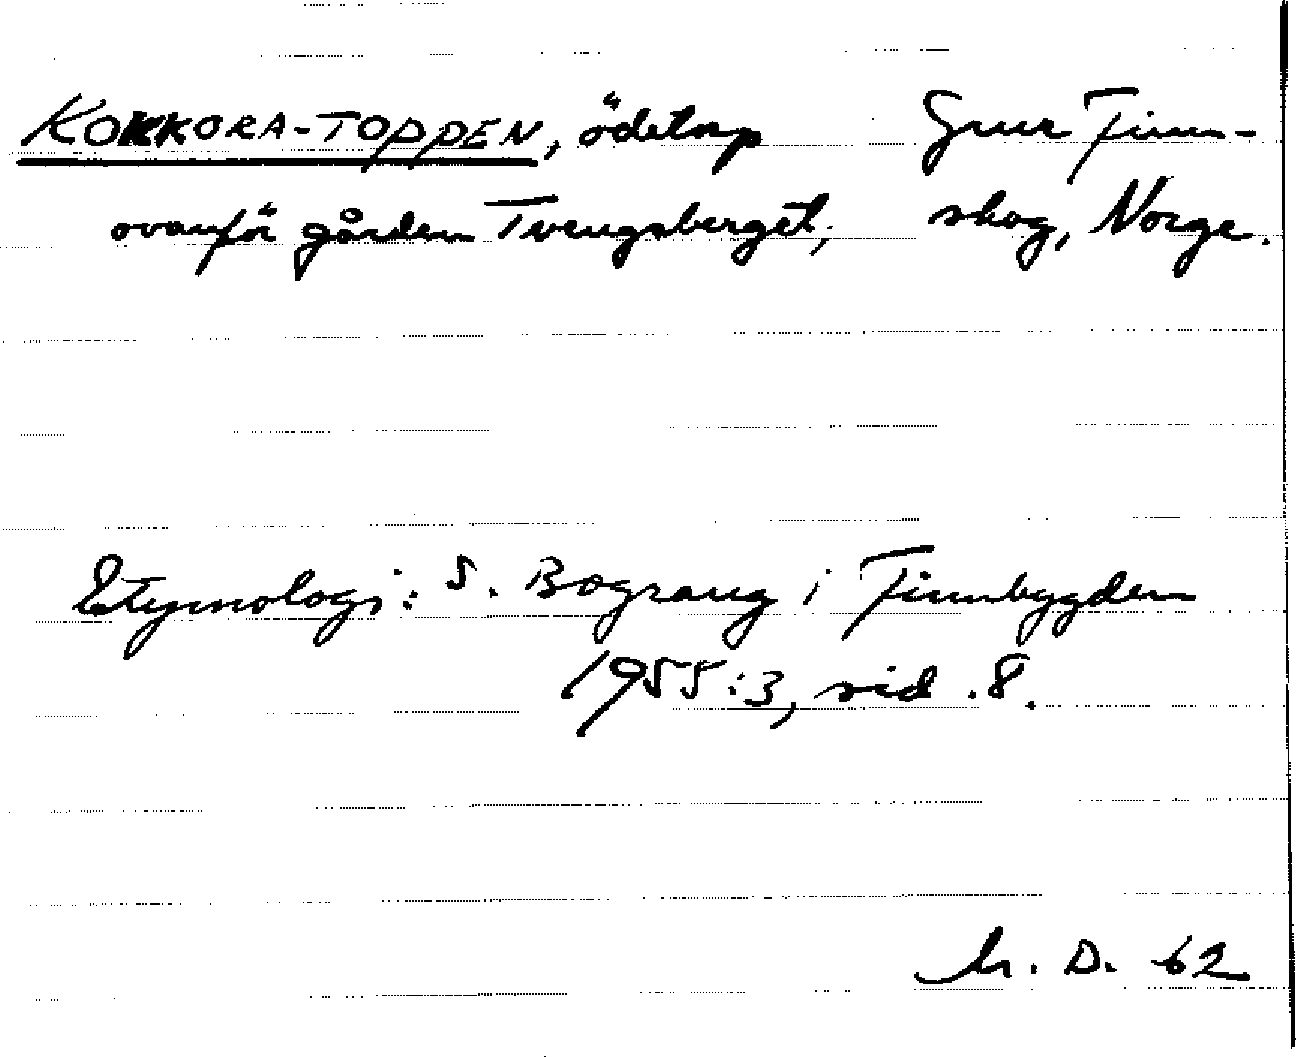 KOKKORA-TOPPEN, ödetorp Grue Finn-
ovanför gården Tvengsberget, skog, Norge.
Etymologi: S. Bograng i Finnbygden
1955:3, sid. 8.
M. D. 62